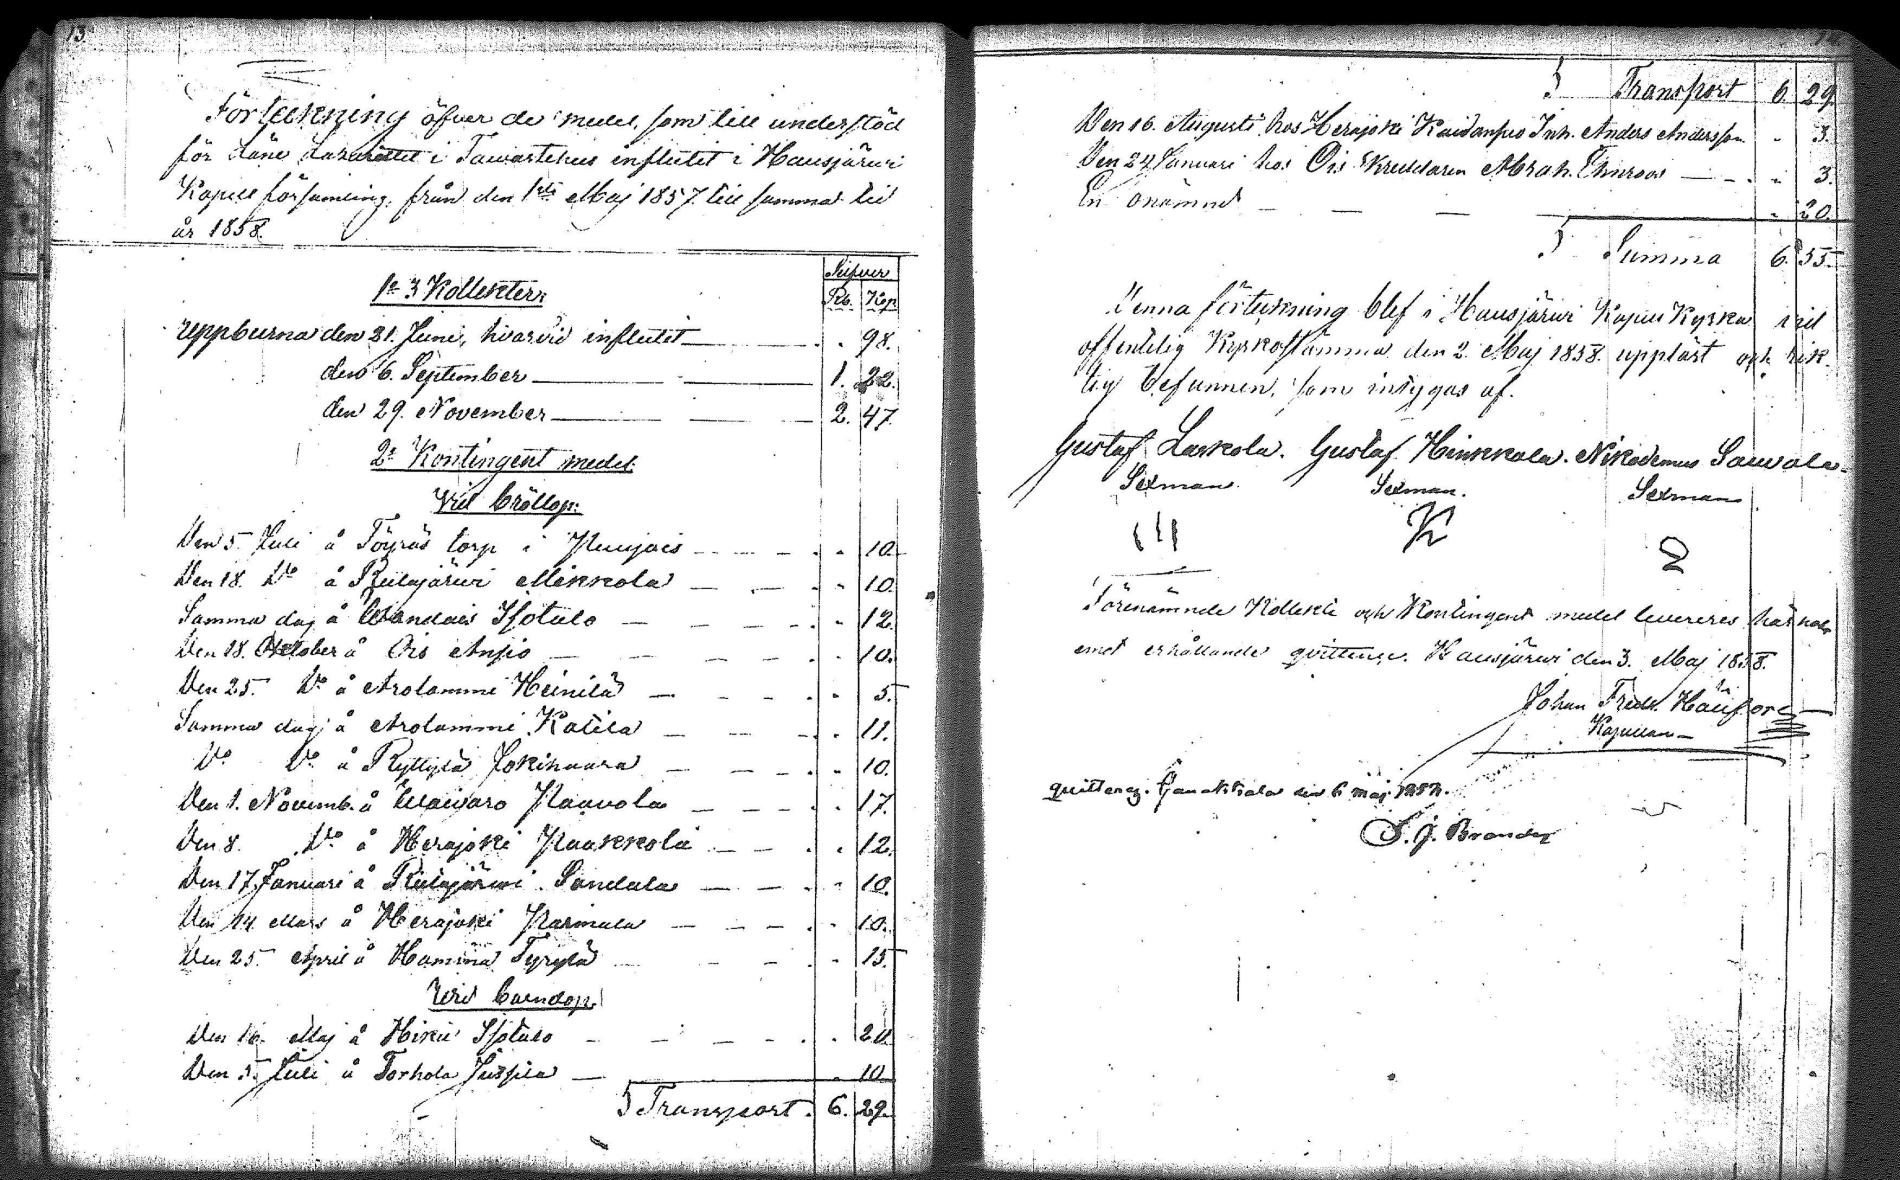 13
Förteckning öfver de medel, som till understöd
för Läne Lazarettet i Tawastehus influtit i Hausjärwi
Kapell församling, från den 1sta Maj 1857 till samma tid
år 1858.
Silfver
1o 3 Kollekter: Rb. Kop
uppburna den 21. Juni, hvarvid influtit — . 98.
den 6. September — 1. 22.
den 29. November — 2. 47.
2o Kontingent medel
Vid bröllop:
Den 5. Juli å Töyräs torp i — " 10.
Den 18. Do å Ridasjärwi Mikkola — " 10.
Samma dag å Isotalo — " 12.
Den 18. Oktober å Ois Anjio — " 10.
Den 25. Do å Arolammi Heinilä — " 5.
Samma dag å Arolammi Katila — " 11.
Do Do å Ryttylä Jokihaara — " 10.
Den 1. Novemb. å Paavola — " 17.
Den 8. Do å Herajoki Paakkola — " 12.
Den 17. Januari å Ridasjärwi Sandala — " 10.
Den 14. Mars å Herajoki Parmala — " 10.
Den 25. April å Hamina Tyrylä — " 15.
Vid barndop.
Den 16. Maj å Hikiä Isotalo — " 20.
Den 5. Juli å Torhola Jussila — " 10.
Transport. 6. 29.
Transport 6. 29.
Den 16. Augusti hos Herajoki Inh. Anders Andersson " 3.
Den 24 Januari hos Ois Skreddaren Abrah. Thuroos — " 3.
En onämnd — " 20.
Summa 6. 55.
Denna förteckning blef i Hausjärwi Kapell Kyrka vid
offentlig Kyrkostämma den 2. Maj 1858. uppläst och rik-
tig befunnen, som intygas af.
Gustaf Laskola. Gustaf Hinkkala. Nikodemus Sauvala.
Sexman. Sexman. Sexman
Förenämnde Kollekt och Kontingent medel levereres
emot erhållande qvittence. Hausjärwi den 3. Maj 1858.
Johan Fredr.
Kapellan
quitteras. Janakkala den 6 maj 1858.